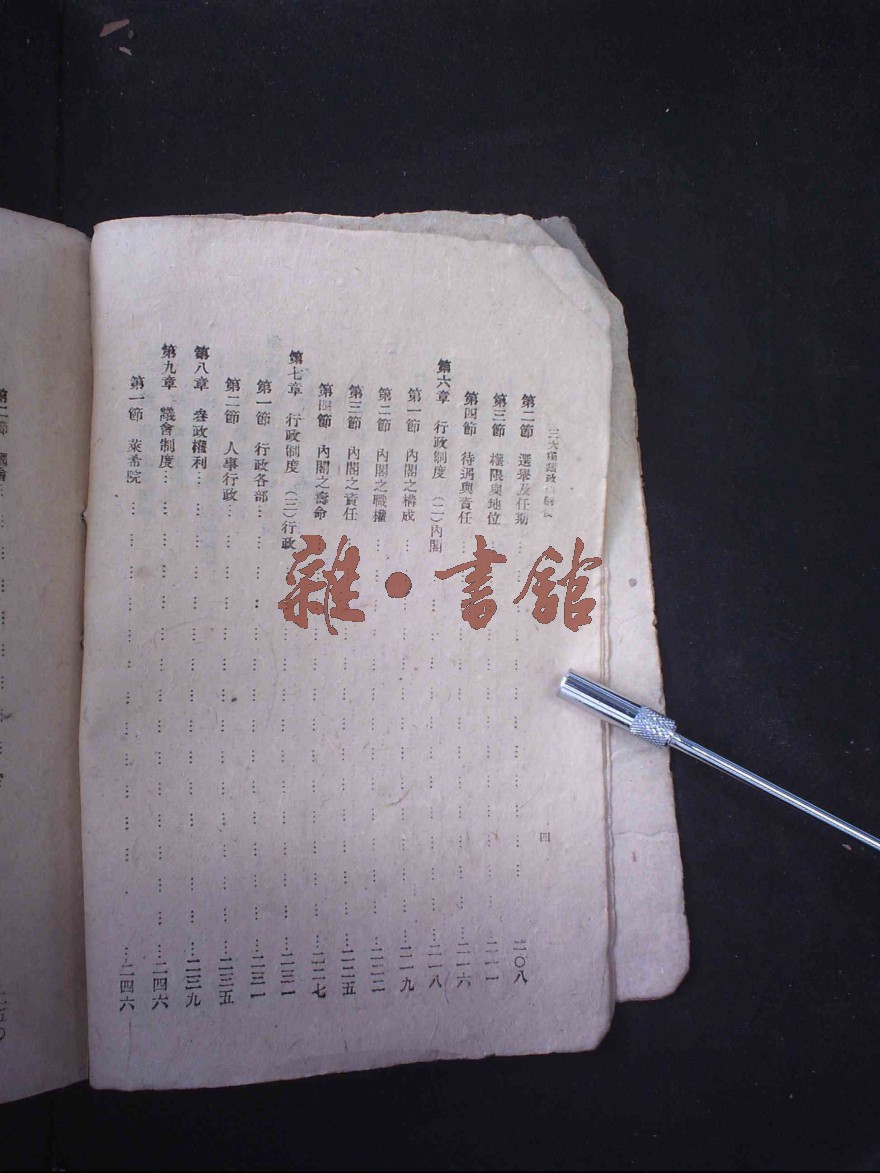 四
第二節 選舉及任期 … … … … … … … … … … 二〇八
第三節 權限與地位 … … … … … … … … … … 二一一
第四節 待遇與責任 … … … … … … … … … … 二一六
第六章 行政制度(二)內閣 … … … … … … … … 二一八
第一節 內閣之構成 … … … … … … … … … … 二一九
第二節 內閣之職權 … … … … … … … … … … 二二二
第三節 內閣之責任 … … … … … … … … … … 二二五
第四節 內閣之壽命 … … … … … … … … … … 二二七
第七章 行政制度(三)行政 … … … … … … … … 二三一
第一節 行政各部 … … … … … … … … … … … 二三一
第二節 人事行政 … … … … … … … … … … … 二三五
第八章 叄政權利 … … … … … … … … … … … 二三九
第九章 議會制度 … … … … … … … … … … … 二四六
第一節 萊希院 … … … … … … … … … … … … 二四六
雜·書館